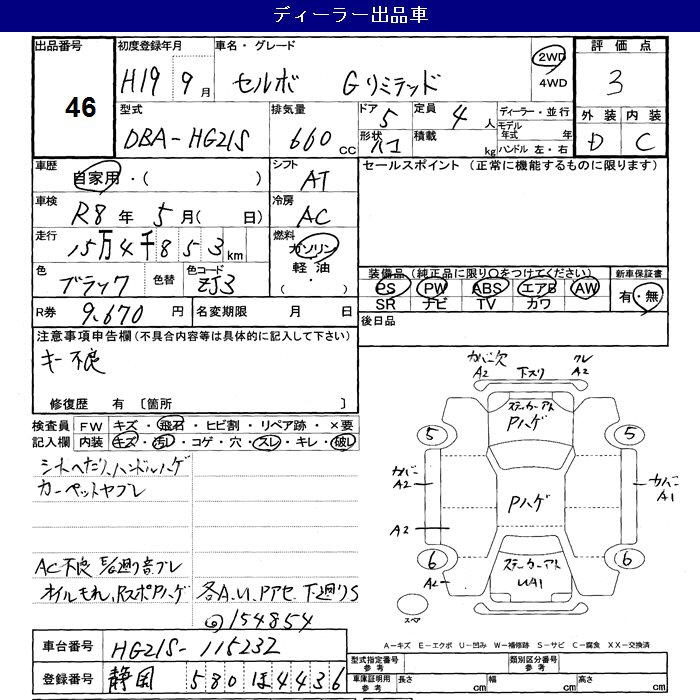 ディーラー出品車
出品番号 46
初度登録年月 H19 9月
車名・グレード セルボ Gリミテッド
2WD
4WD
評価点 3
型式 DBA-HG21S
排気量 660 cc
ドア 5
形状 ハコ
定員 4人
積載 kg
ディーラー・並行
モデル年式 年
ハンドル 左・右
外装 D
内装 C
車歴 自家用・( )
シフト AT
セールスポイント (正常に機能するものに限ります)
車検 R8年 5月( 日)
冷房 AC
走行 15万4千853km
燃料 ガソリン
軽油
( ・ )
色 ブラック 色替
色コード ZJ3
装備品 (純正品に限り○をつけてください)
PS PW ABS エアB AW
SR ナビ TV カワ
新車保証書
有・無
R券 9,670円
名変期限 月 日
後日品
注意事項申告欄 (不具合内容等は具体的に記入して下さい)
キー不良
修復歴 有 〔箇所 〕
検査員記入欄
FW キズ・飛石・ヒビ割・リペア跡・×要
内装 キズ・汚レ・コゲ・穴・スレ・キレ・破レ
シートヘタリ、ハンドルハゲ
カーペットヤブレ
AC不良 廻り音ブレ
オイルモレ、RスポPハゲ
各A.U.Pアセ 下廻りS
154854
カバー欠 A2
下スリ
ワレ A2
ステッカーアト
Pハゲ
5 5
カバー A2
カバー A1
Pハゲ
A2
6 6
A2
ステッカーアト
UA1
スペア
A-キズ E-エクボ U-凹み W-補修跡 S-サビ C-腐食 XX-交換済
車台番号 HG21S-115232
登録番号 静岡 580 ほ 4436
型式指定番号 参考
類別区分番号 参考
車庫証明用 参考
長さ cm
幅 cm
高さ cm